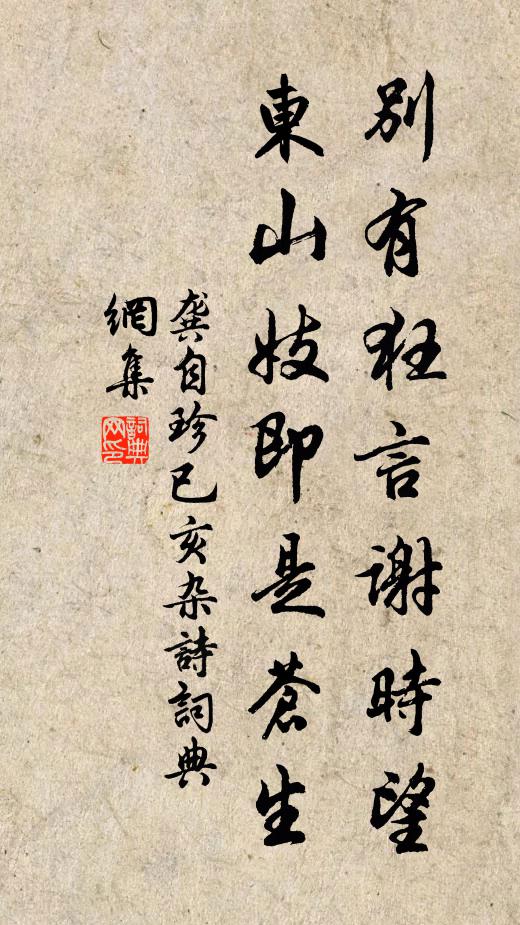 別有狂言謝時望
東山妓即是蒼生
龔自珍己亥杂詩詞典
網集
詞典網印